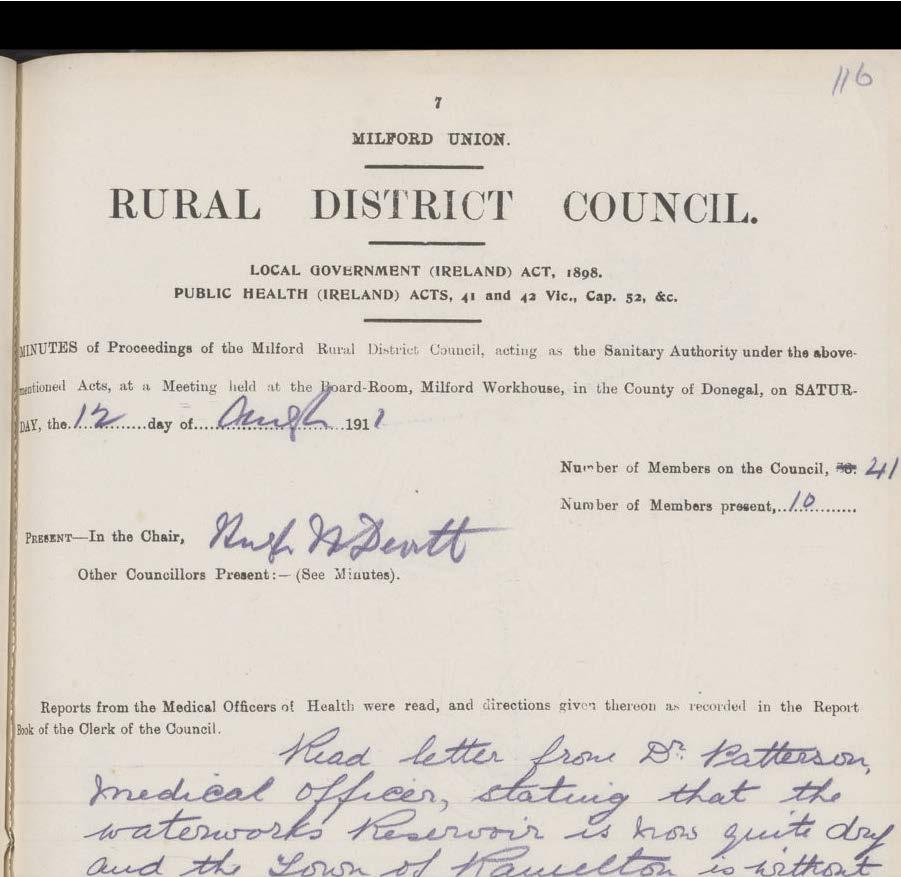 116
7
MILFORD UNION.
RURAL DISTRICT COUNCIL.
LOCAL GOVERNMENT (IRELAND) ACT, 1898.
PUBLIC HEALTH (IRELAND) ACTS, 41 and 42 Vic., Cap. 52, &c.
MINUTES of Proceedings of the Milford Rural District Council, acting as the Sanitary Authority under the above-
mentioned Acts, at a Meeting held at the Board-Room, Milford Workhouse, in the County of Donegal, on SATUR-
DAY, the 12 day of Augt 1911
Number of Members on the Council, 41
Number of Members present, 10
PRESENT—In the Chair, Hugh McDevitt
Other Councillors Present:— (See Minutes).
Reports from the Medical Officers of Health were read, and directions given thereon as recorded in the Report
Book of the Clerk of the Council.
Read letter from Dr. Patterson,
Medical Officer, stating that the
waterworks Reservoir is now quite dry
and the Town of Ramelton is without